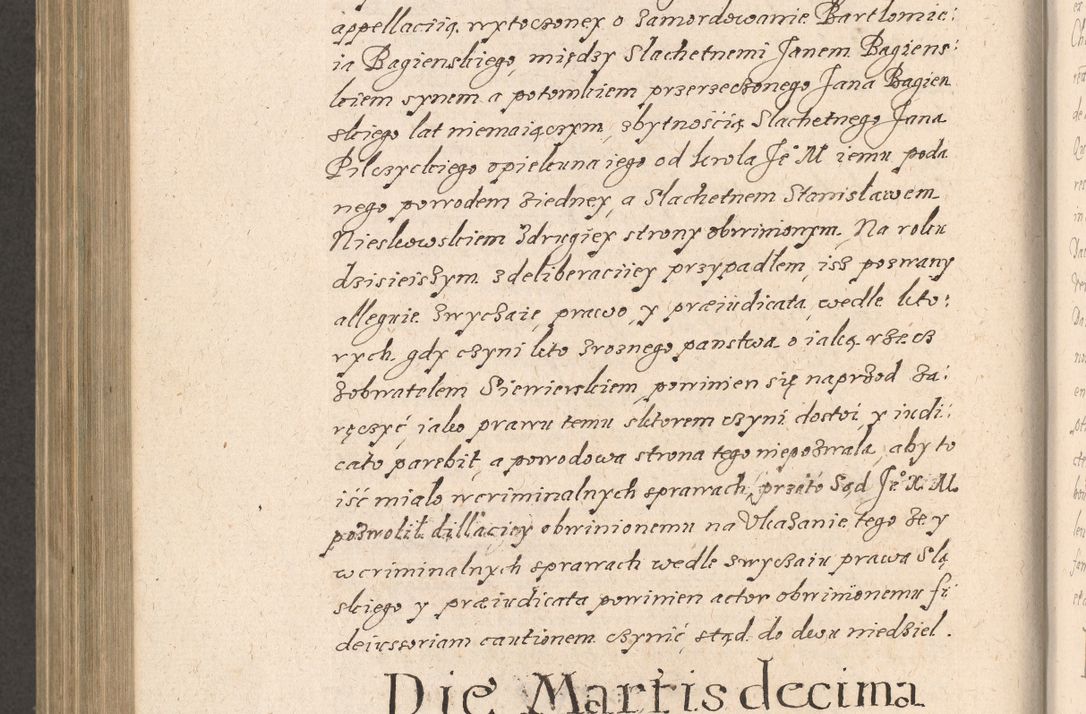 appellaciią, wytoczoney o zamordowanie Bartłomie:
ia Bagienskiego, między Slachetnemi Janem Bagiens:
kiem synem a potomkiem przerzeczonego Jana Bagien
skiego lat niemaiączym, zbytnoscią Slachetnego Jana
Pilczyckiego opiekuna iego od krola Je° M iemu poda
nego powodem ziedney, a Slachetnem Stanisławem
Nieskowskiem zdrugiey strony obwinionym. Na roku
dzisieiszym z deliberaciiey przypadłem, isz pozwany
alleguie zwyczaie, prawo, y præiudicata, wedle kto:
rych, gdy czyni kto zroznego panstwa o iaką rzecz
zobwatelem Siewierskiem, powinien się naprzod za:
ręczyć, iako prawu temu sktorem czyni dostoi, y iudi:
cato parebit, a powodowa strona tego niepozwala, aby to
iść miało w criminalnych sprawach, przeto Sąd Je° X M
pozwolił dillaciey obwinionemu na Ukazanie tego ze y
w criminalnych sprawach wedle zwyczaiu prawa Slą
skiego y præiudicata powinien actor obwinionemu fi
deiussoriam cautionem czynić, stąd do dwu niedziel.
Die Martis decima